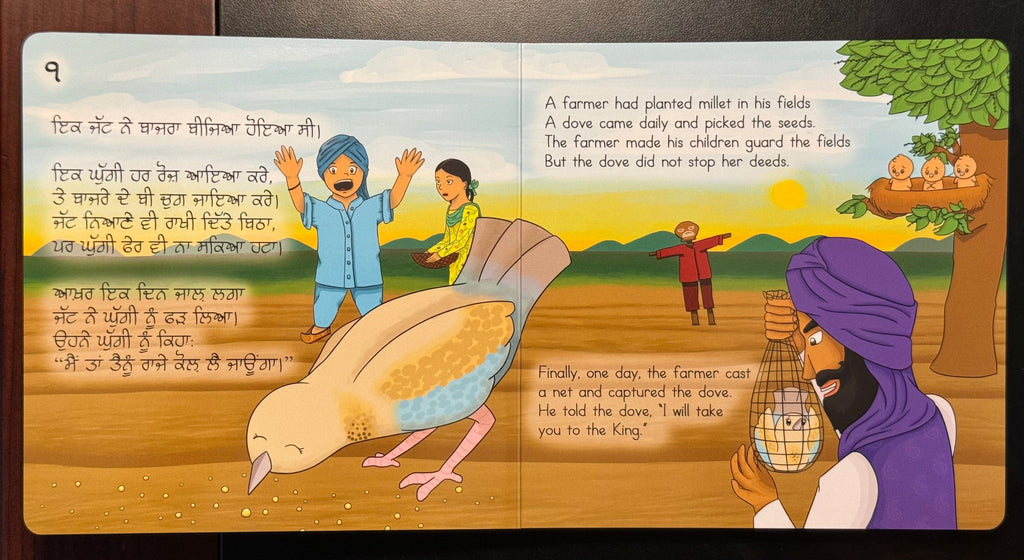 ੧
ਇਕ ਜੱਟ ਨੇ ਬਾਜਰਾ ਬੀਜਿਆ ਹੋਇਆ ਸੀ।
ਇਕ ਘੁੱਗੀ ਹਰ ਰੋਜ਼ ਆਇਆ ਕਰੇ,
ਤੇ ਬਾਜਰੇ ਦੇ ਬੀ ਚੁਗ ਜਾਇਆ ਕਰੇ।
ਜੱਟ ਨਿਆਣੇ ਵੀ ਰਾਖੀ ਦਿੱਤੇ ਬਿਠਾ,
ਪਰ ਘੁੱਗੀ ਫੇਰ ਵੀ ਨਾ ਸਕਿਆ ਹਟਾ।
ਆਖ਼ਰ ਇਕ ਦਿਨ ਜਾਲ਼ ਲਗਾ
ਜੱਟ ਨੇ ਘੁੱਗੀ ਨੂੰ ਫੜ ਲਿਆ।
ਉਹਨੇ ਘੁੱਗੀ ਨੂੰ ਕਿਹਾ:
“ਮੈਂ ਤਾਂ ਤੈਨੂੰ ਰਾਜੇ ਕੋਲ਼ ਲੈ ਜਾਊਂਗਾ।”
A farmer had planted millet in his fields
A dove came daily and picked the seeds.
The farmer made his children guard the fields
But the dove did not stop her deeds.
Finally, one day, the farmer cast
a net and captured the dove.
He told the dove, “I will take
you to the King.”